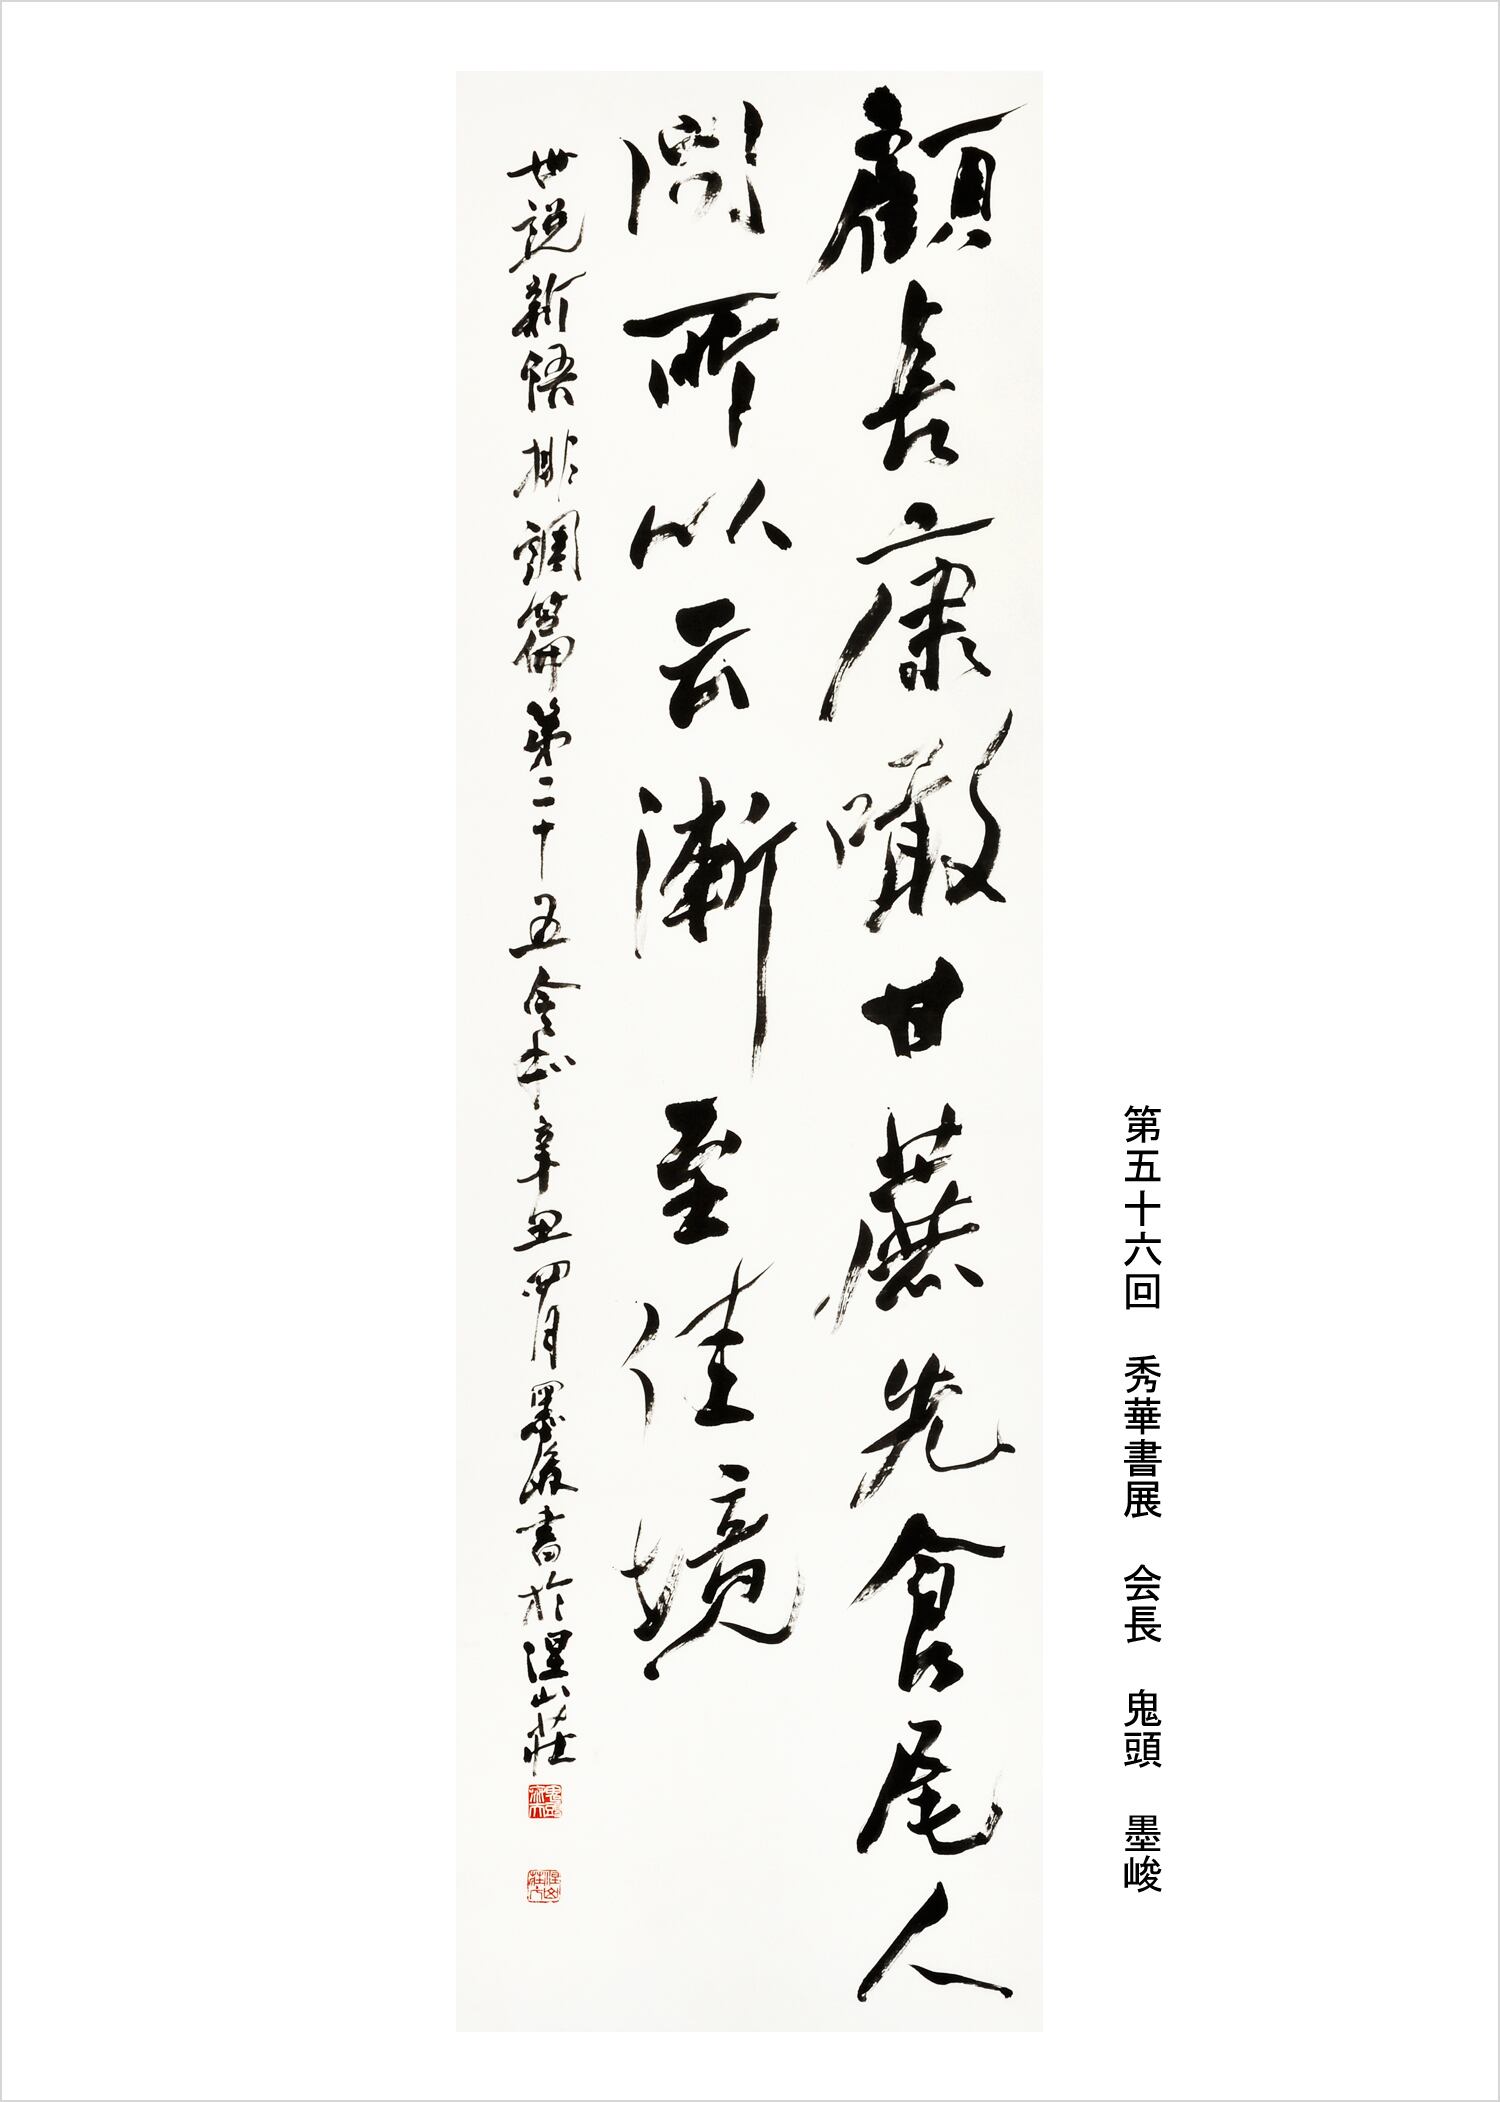 第五十六回　秀華書展　会長　鬼頭　墨峻
顧長康噉甘蔗先食尾人
問所以云漸至佳境
世説新語排調篇第二十五辛丑四月墨峻書於山荘